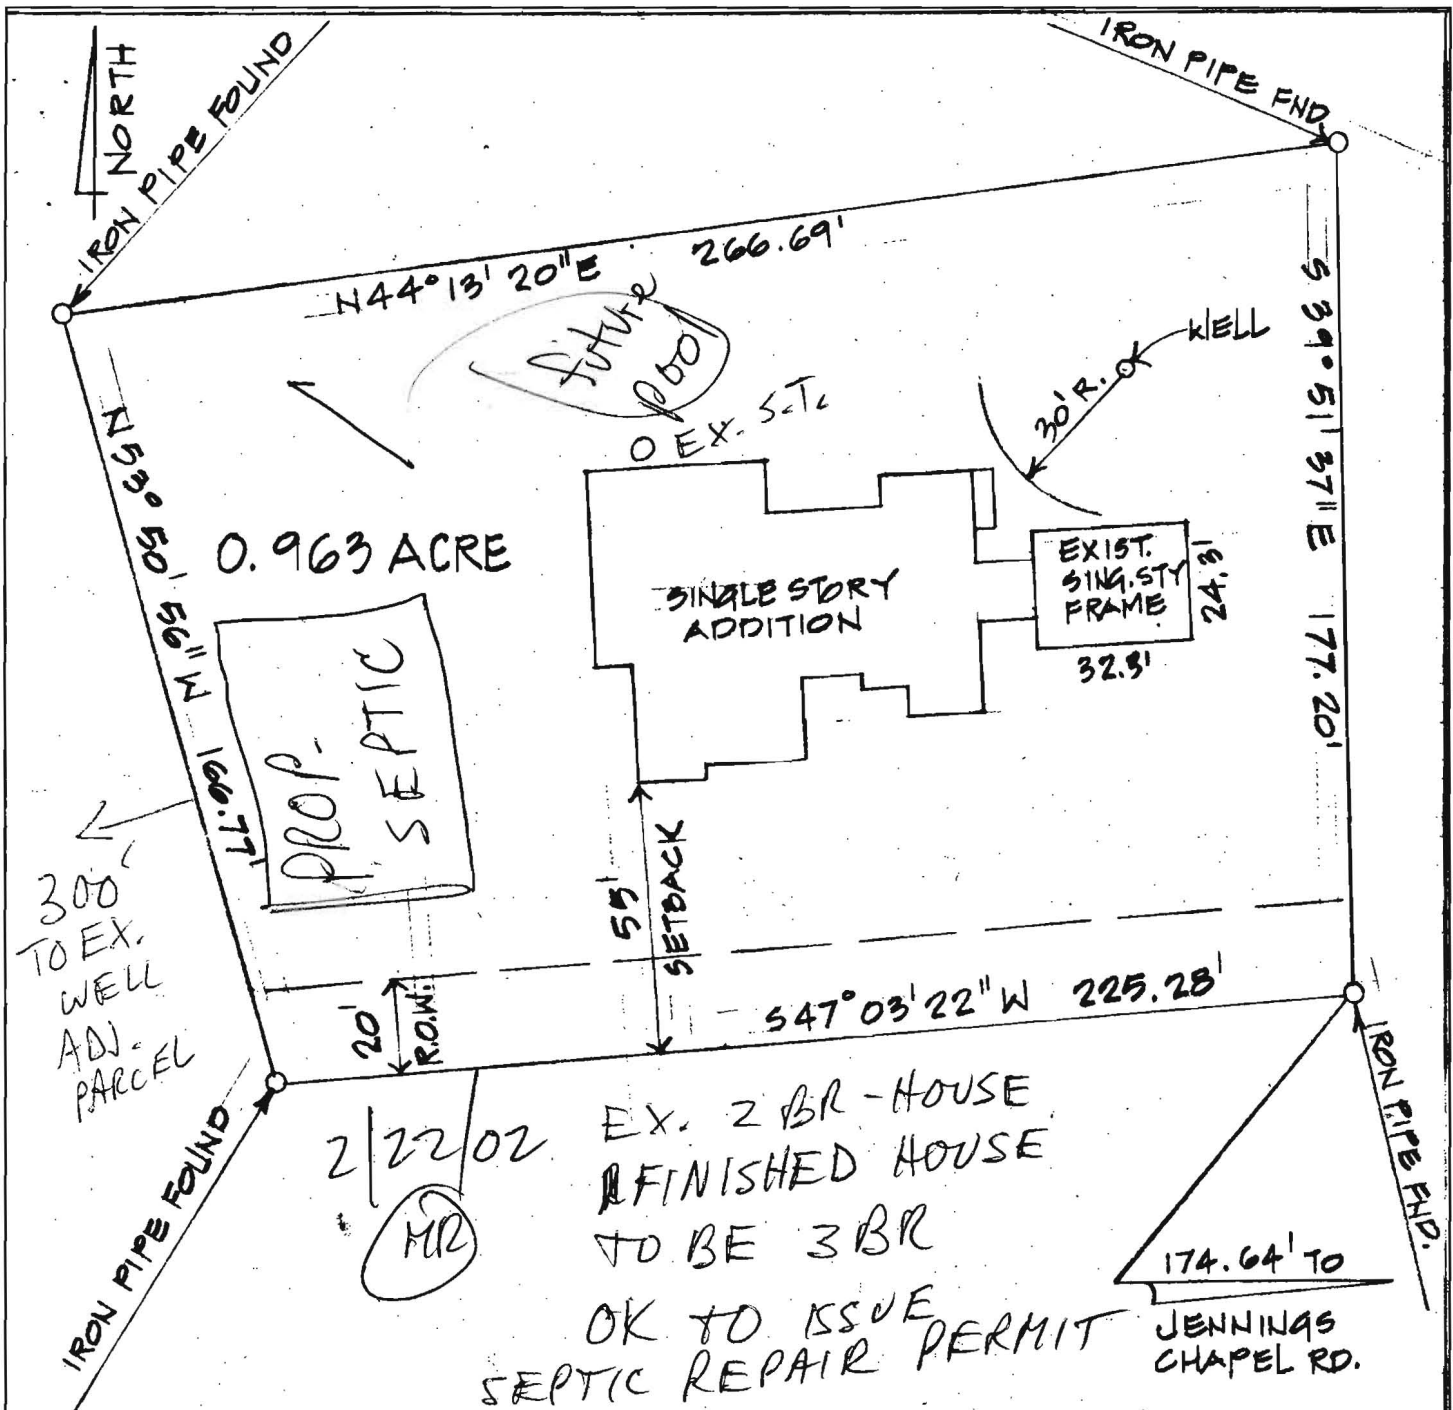 NORTH
IRON PIPE FOUND
IRON PIPE FND.
N44° 13' 20" E 266.69'
future
pool
WELL
30' R.
EX. S.T.
S 39° 51' 37" E 177.20'
N 53° 50' 56" W 166.77'
0.963 ACRE
SINGLE STORY
ADDITION
EXIST.
SING. STY
FRAME
24.3'
32.3'
PROP.
SEPTIC
300'
TO EX.
WELL
ADJ.
PARCEL
55'
SETBACK
20'
R.O.W.
S47° 03' 22" W 225.28'
IRON PIPE FOUND
IRON PIPE FND.
2/22/02
MR
EX. 2 BR - HOUSE
FINISHED HOUSE
TO BE 3 BR
OK TO ISSUE
SEPTIC REPAIR PERMIT
174.64' TO
JENNINGS
CHAPEL RD.